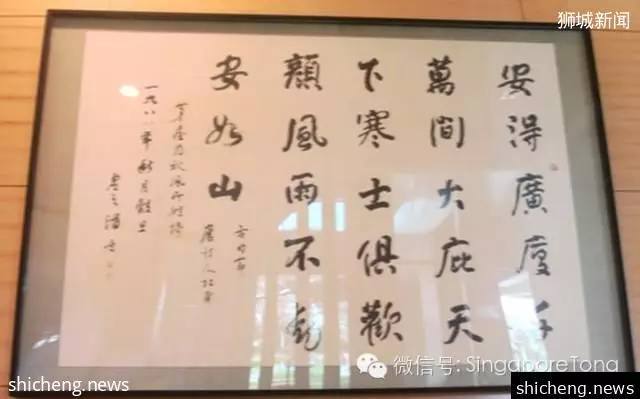 狮城新闻
安得廣廈千
萬間大庇天
下寒士俱歡
顏風雨不動
安如山
唐詩人杜甫
茅屋為秋風所破歌
一九八八年
微信号: SingaporeTong
shicheng.news
shicheng.news